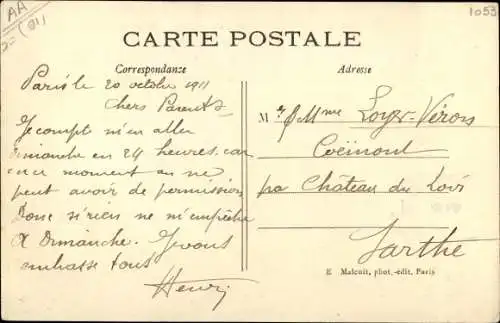 AA
(911
1053
CARTE POSTALE
Correspondance
Adresse
Paris le 20 octobre 1911
Chers Parents
Je compte m'en aller
dimanche en 24 heures car
en ce moment on ne
peut avoir de permission
Donc si rien ne m'empêche
A Dimanche. Je vous
embrasse tous
Henri
M r & Mme Loyer-Véron
Coëmont
par Château du Loir
Sarthe
E Malcuit, phot.-édit. Paris